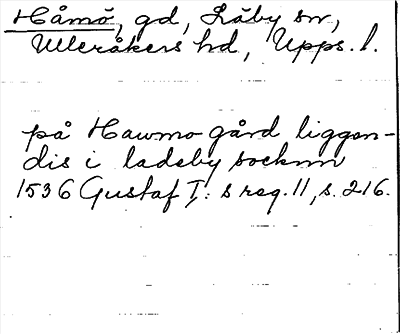 Håmö, gd, Läby sn,
Ulleråkers hd, Upps. l.
på Hawmo gård liggan-
dis i ladeby socknn
1536 Gustaf I: s reg. 11, s. 216.